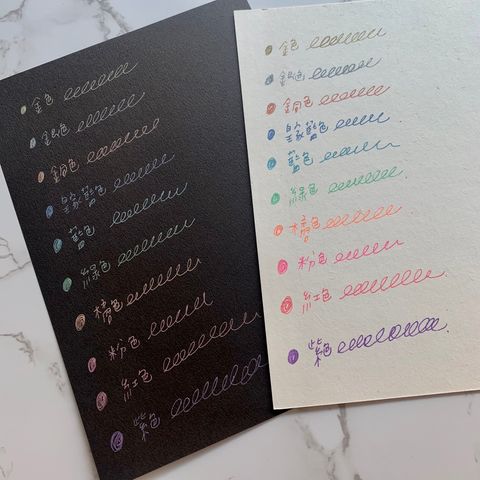 金色
銀色
銅色
皇家藍色
藍色
綠色
橘色
粉色
紅色
紫色
金色
銀色
銅色
皇家藍色
藍色
綠色
橘色
粉色
紅色
紫色